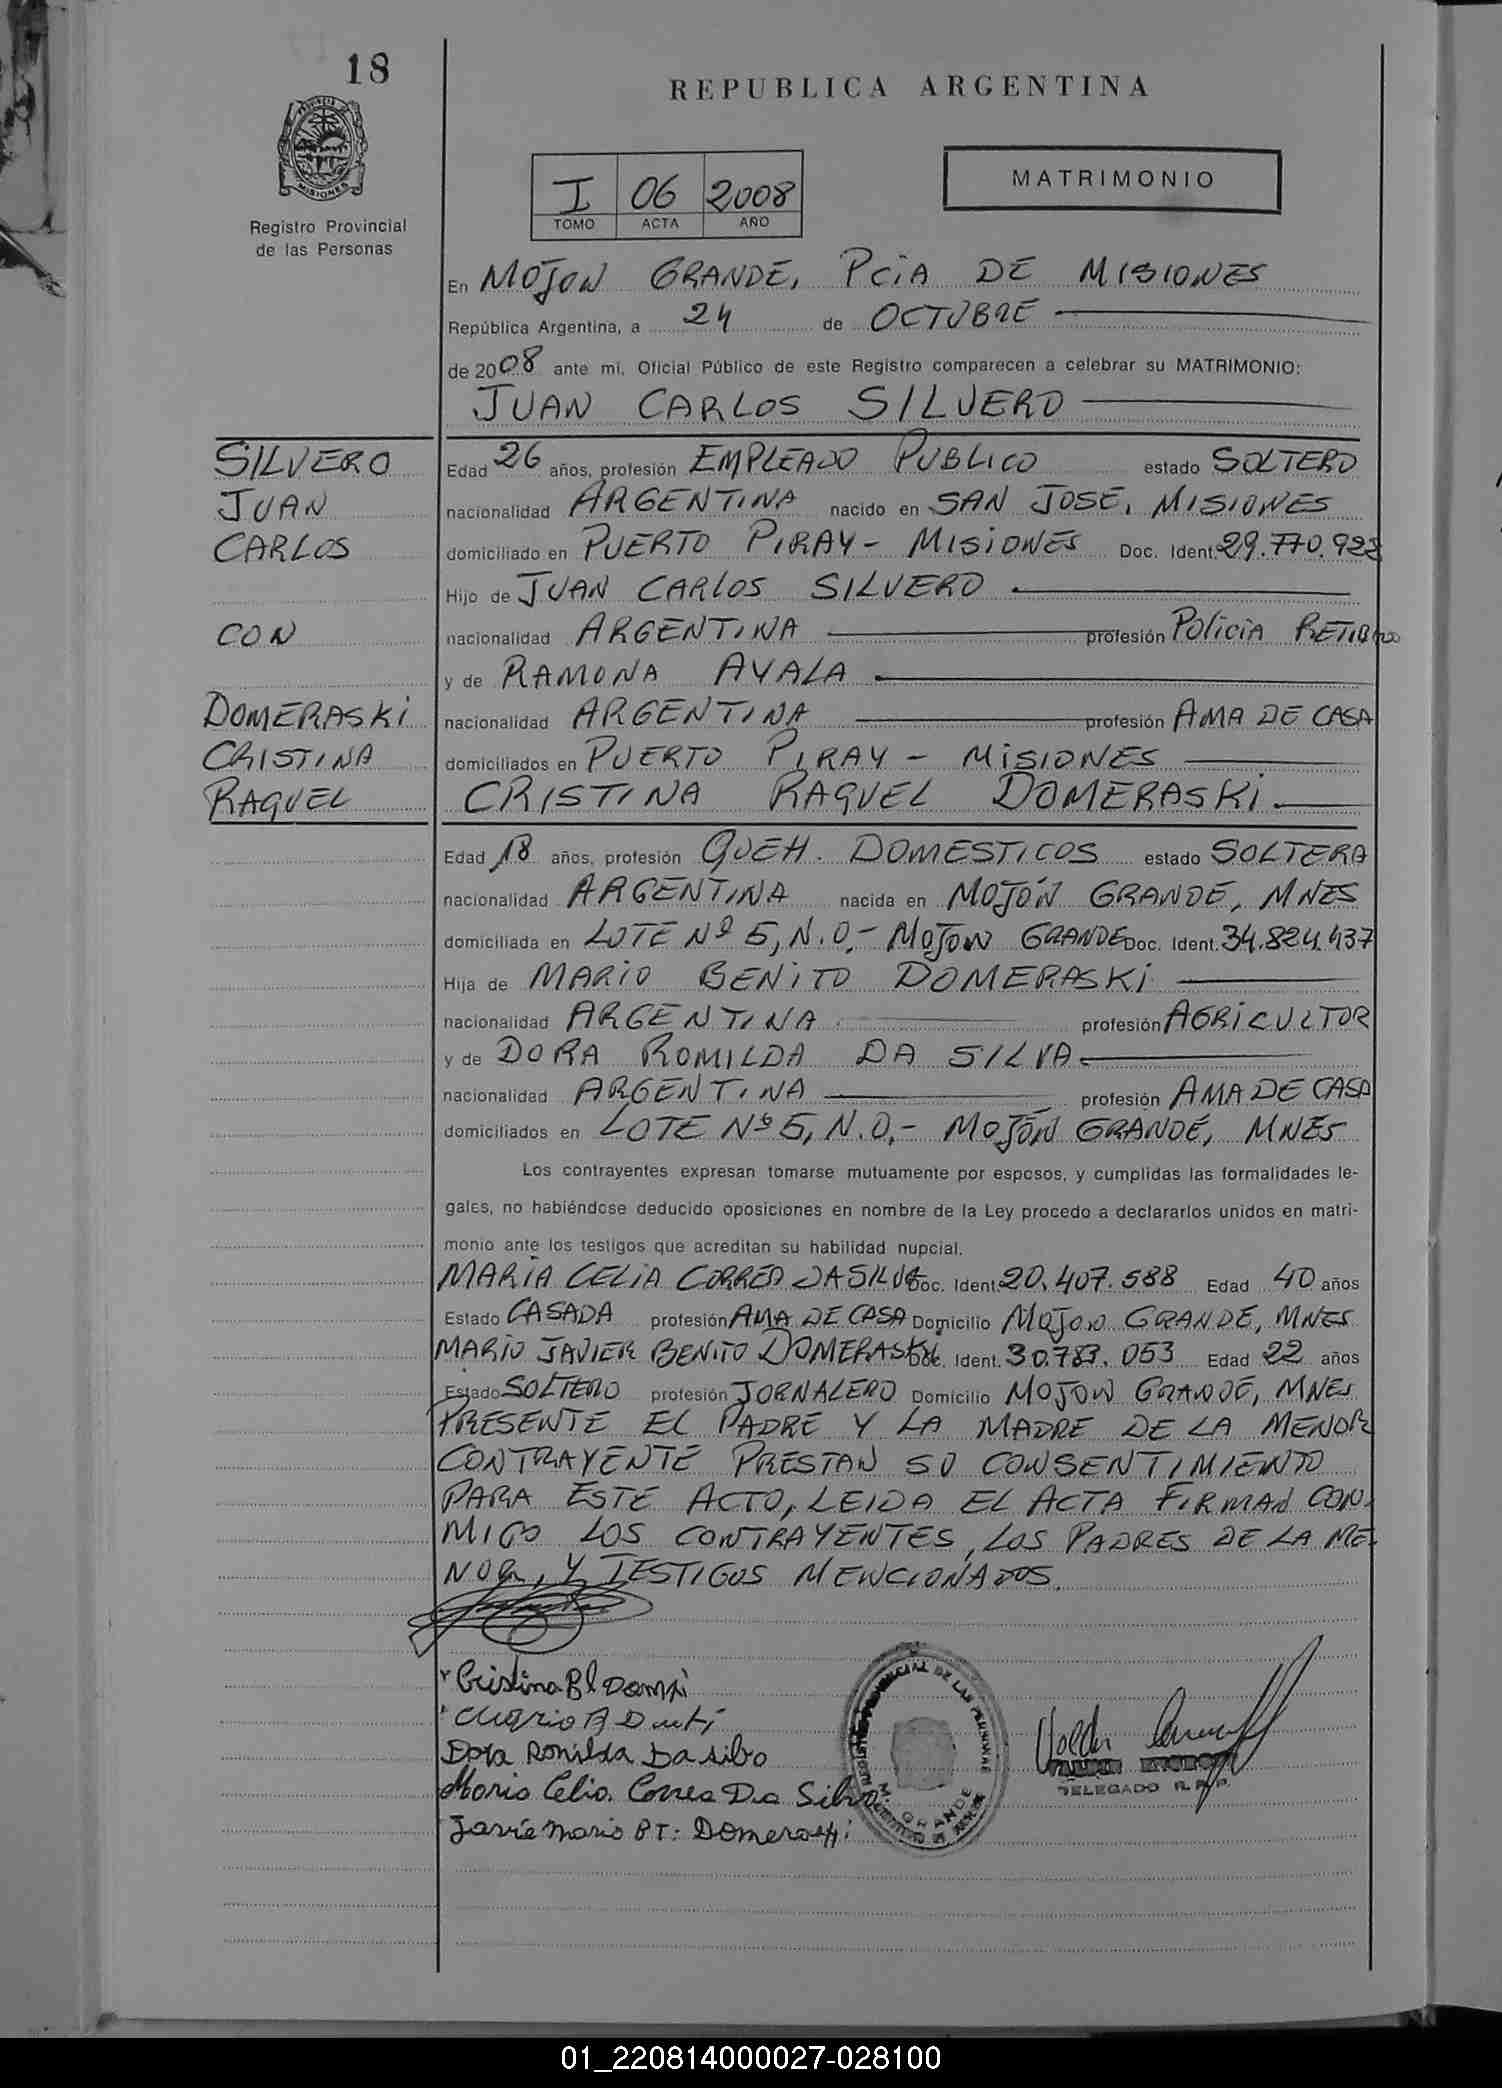 18
REPUBLICA ARGENTINA
MISIONES
Registro Provincial
de las Personas
I 06 2008
TOMO ACTA AÑO
MATRIMONIO
En MOJON GRANDE, PCIA DE MISIONES
República Argentina, a 24 de OCTUBRE
de 2008 ante mi, Oficial Público de este Registro comparecen a celebrar su MATRIMONIO:
JUAN CARLOS SILVERO
SILVERO
JUAN
CARLOS
CON
DOMERASKI
CRISTINA
RAQUEL
Edad 26 años, profesión EMPLEADO PUBLICO estado SOLTERO
nacionalidad ARGENTINA nacido en SAN JOSE, MISIONES
domiciliado en PUERTO PIRAY - MISIONES Doc. Ident. 29.770.922
Hijo de JUAN CARLOS SILVERO
nacionalidad ARGENTINA profesión POLICIA RETIRADO
y de RAMONA AYALA
nacionalidad ARGENTINA profesión AMA DE CASA
domiciliados en PUERTO PIRAY - MISIONES
CRISTINA RAQUEL DOMERASKI
Edad 18 años, profesión QUEH. DOMESTICOS estado SOLTERA
nacionalidad ARGENTINA nacida en MOJÓN GRANDE, MNES
domiciliada en LOTE Nº 5, N.O.- MOJON GRANDE Doc. Ident. 34.824.437
Hija de MARIO BENITO DOMERASKI
nacionalidad ARGENTINA profesión AGRICULTOR
y de DORA ROMILDA DA SILVA
nacionalidad ARGENTINA profesión AMA DE CASA
domiciliados en LOTE Nº 5, N.O.- MOJÓN GRANDE, MNES
Los contrayentes expresan tomarse mutuamente por esposos, y cumplidas las formalidades le-
gales, no habiéndose deducido oposiciones en nombre de la Ley procedo a declararlos unidos en matri-
monio ante los testigos que acreditan su habilidad nupcial.
MARIA CELIA CORREA DA SILVA Doc. Ident. 20.407.588 Edad 40 años
Estado CASADA profesión AMA DE CASA Domicilio MOJON GRANDE, MNES
MARIO JAVIER BENITO DOMERASKI Doc. Ident. 30.783.053 Edad 22 años
Estado SOLTERO profesión JORNALERO Domicilio MOJON GRANDE, MNES
PRESENTE EL PADRE Y LA MADRE DE LA MENOR
CONTRAYENTE PRESTAN SU CONSENTIMIENTO
PARA ESTE ACTO, LEIDA EL ACTA FIRMAN CON-
MIGO LOS CONTRAYENTES, LOS PADRES DE LA ME-
NOR, Y TESTIGOS MENCIONADOS.
Cristina
Dora Romilda Da Silva
Maria Celia Correa Da Silva
Javie Mario
PROVINCIAL DE LAS PERSONAS
M. GRANDE
DELEGADO R.P.P.
01_220814000027-028100